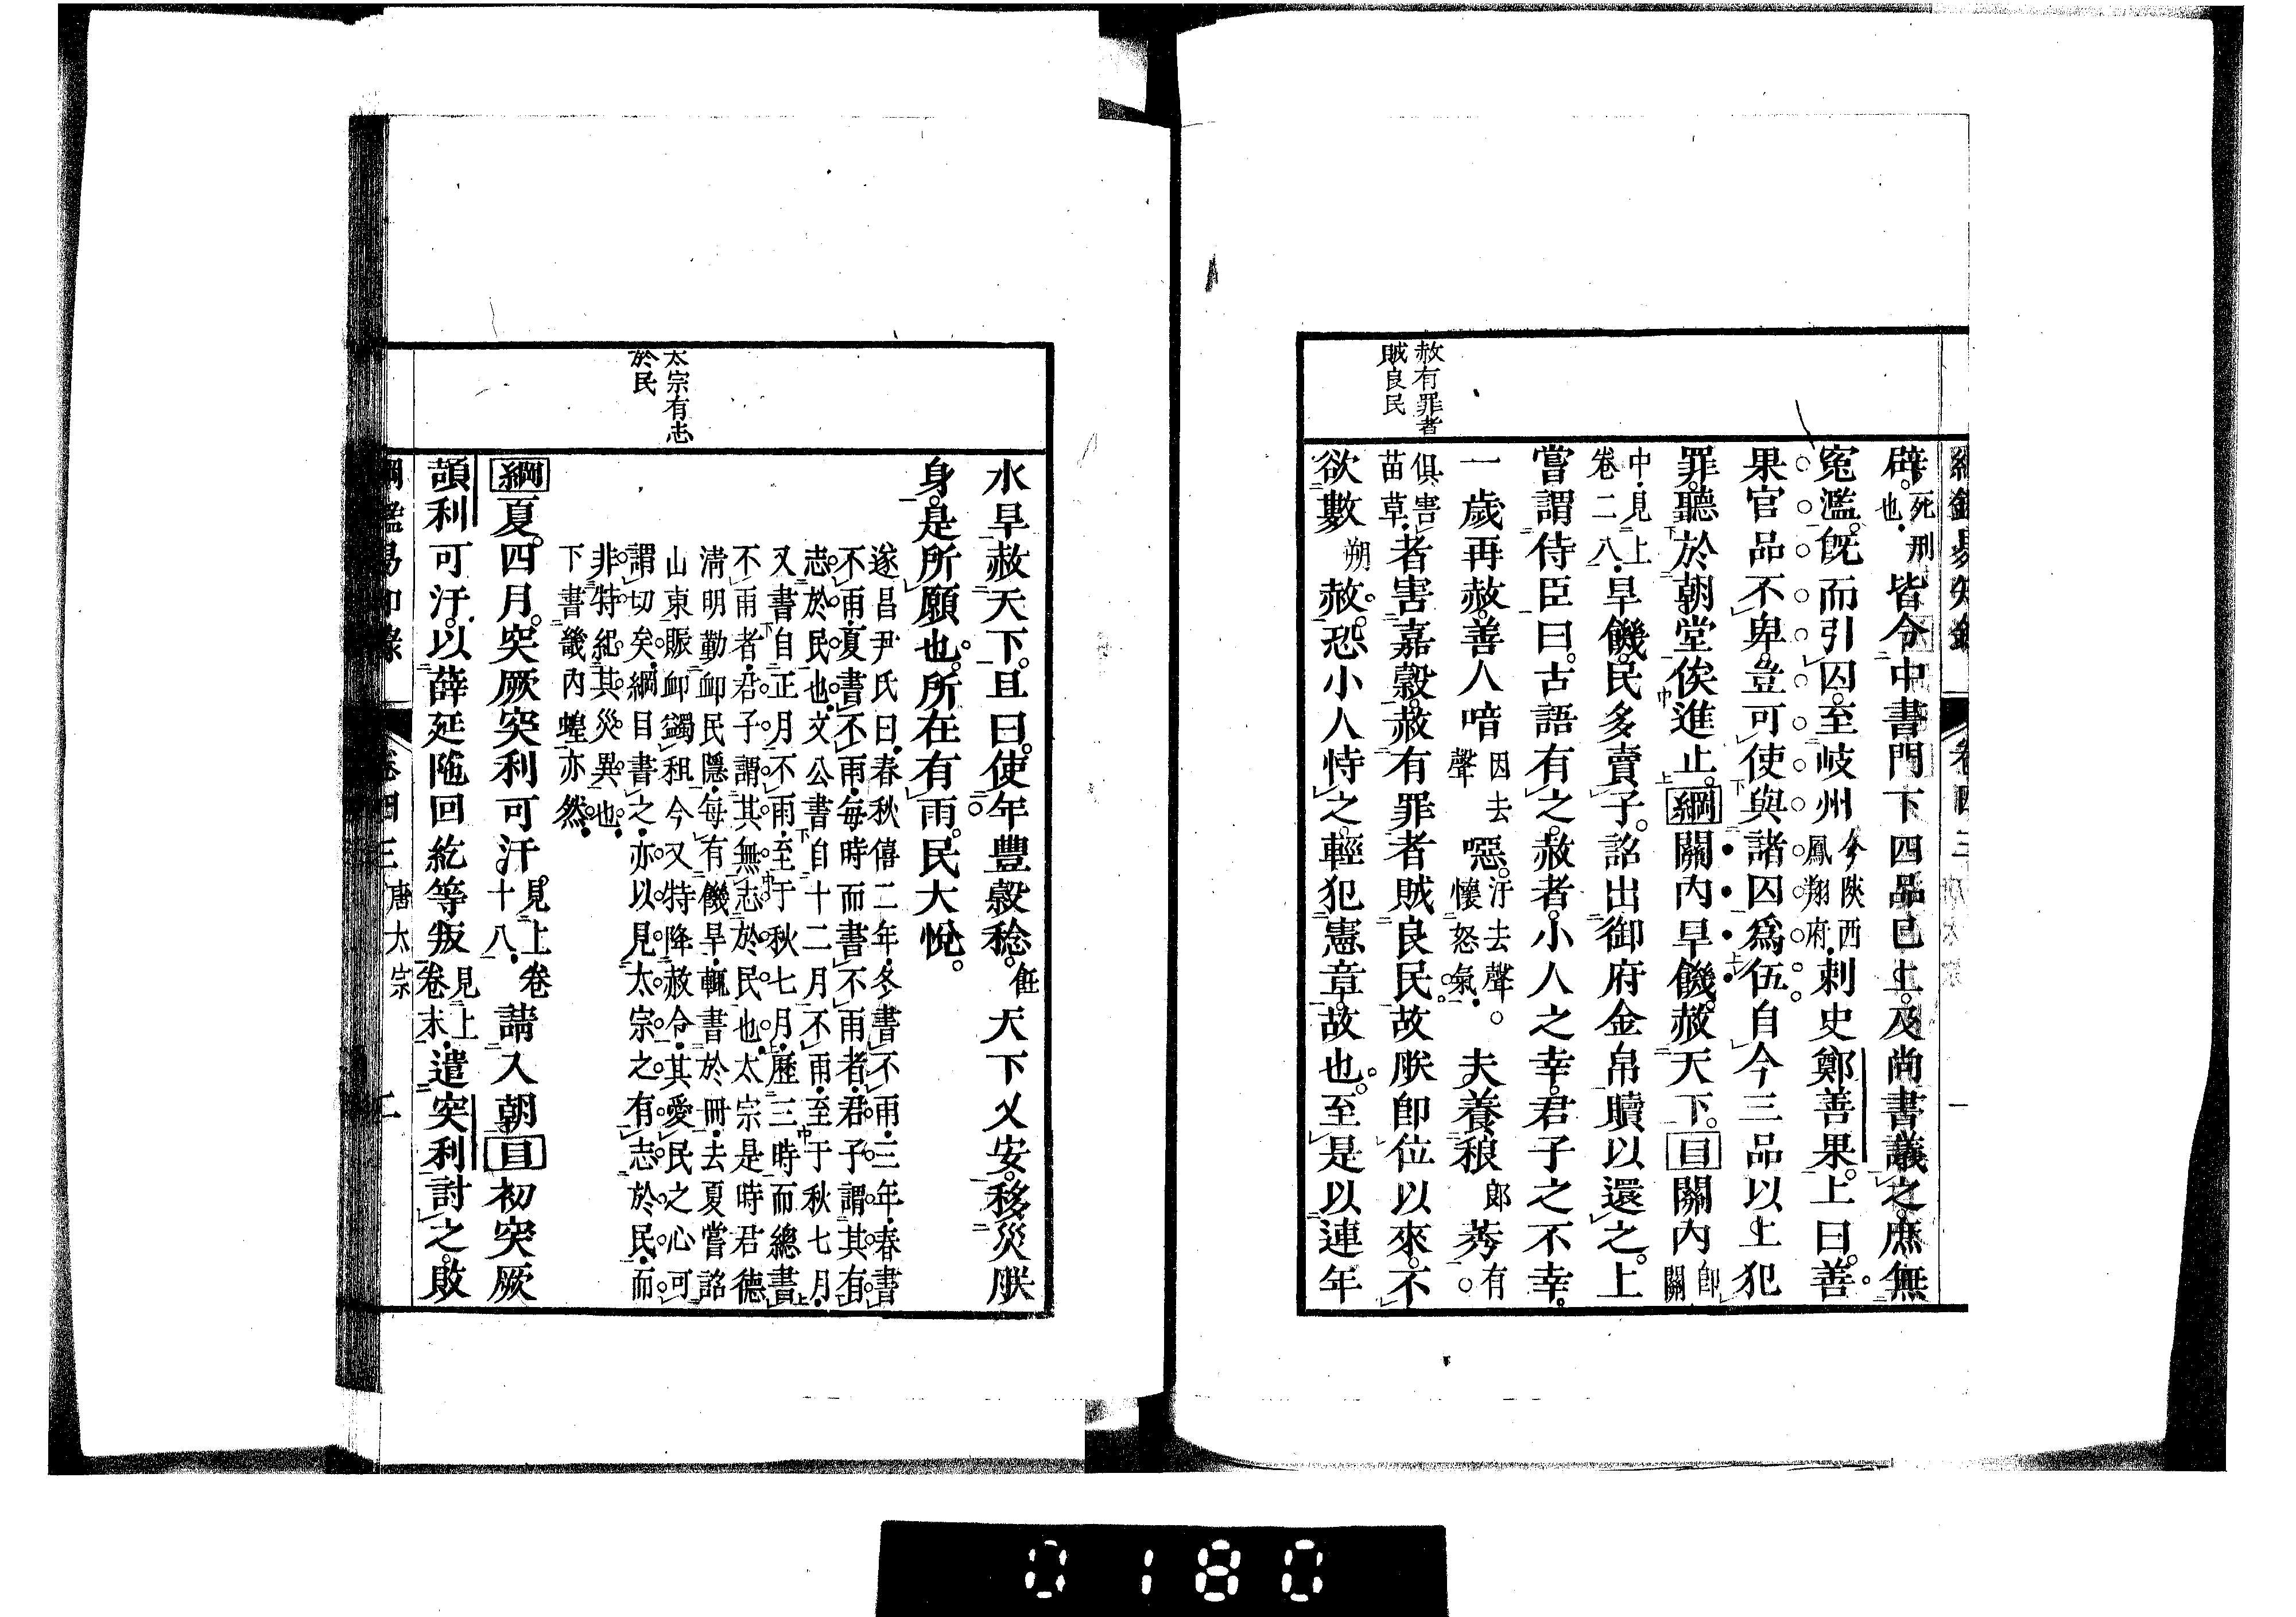 赦有罪者
賊良民
辟死刑也皆令中書門下四品已上及尚書議之庶無
寃濫旣而引囚至岐州今陝西鳳翔府刺史鄭善果上曰善
果官品不卑豈可使與諸囚爲伍自今三品以上犯
罪聽於朝堂俟進止綱關内旱饑赦天下目關内卽關
中見上卷二八旱饑民多賣子詔出御府金帛贖以還之上
嘗謂侍臣曰古語有之赦者小人之幸君子之不幸
一歲再赦善人喑因去聲噁汙去聲懷怒氣○夫養稂郎莠有○
俱害苗草者害嘉穀赦有罪者賊良民故朕卽位以來不
欲數朔赦恐小人恃之輕犯憲章故也至是以連年
太宗有志
於民
水旱赦天下且曰使年豐穀稔飪天下乂安移災朕
身是所願也所在有雨民大悅
遂昌尹氏曰春秋僖二年冬書不雨三年春書
不雨夏書不雨每時而書不雨者君子謂其有
志於民也文公書自十二月不雨至于秋七月
又書自正月不雨至于秋七月歷三時而總書
不雨者君子謂其無志於民也太宗是時君德
淸明勤卹民隱每有饑旱輒書於冊去夏嘗詔
山東賑卹蠲租今又特降赦令其愛民之心可
謂切矣綱目書之亦以見太宗之有志於民而
非特紀其災異也
下書畿内蝗亦然
綱夏四月突厥突利可汗見上卷十八請入朝目初突厥
頡利可汗以薛延陁回紇等叛見上卷末遣突利討之敗
綱鑑易知錄 卷四三 唐太宗 二